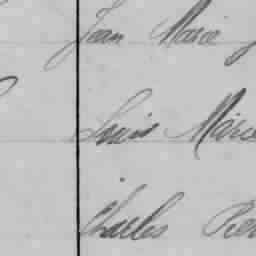 Jean Marie
Louis Marce
Charles Pier